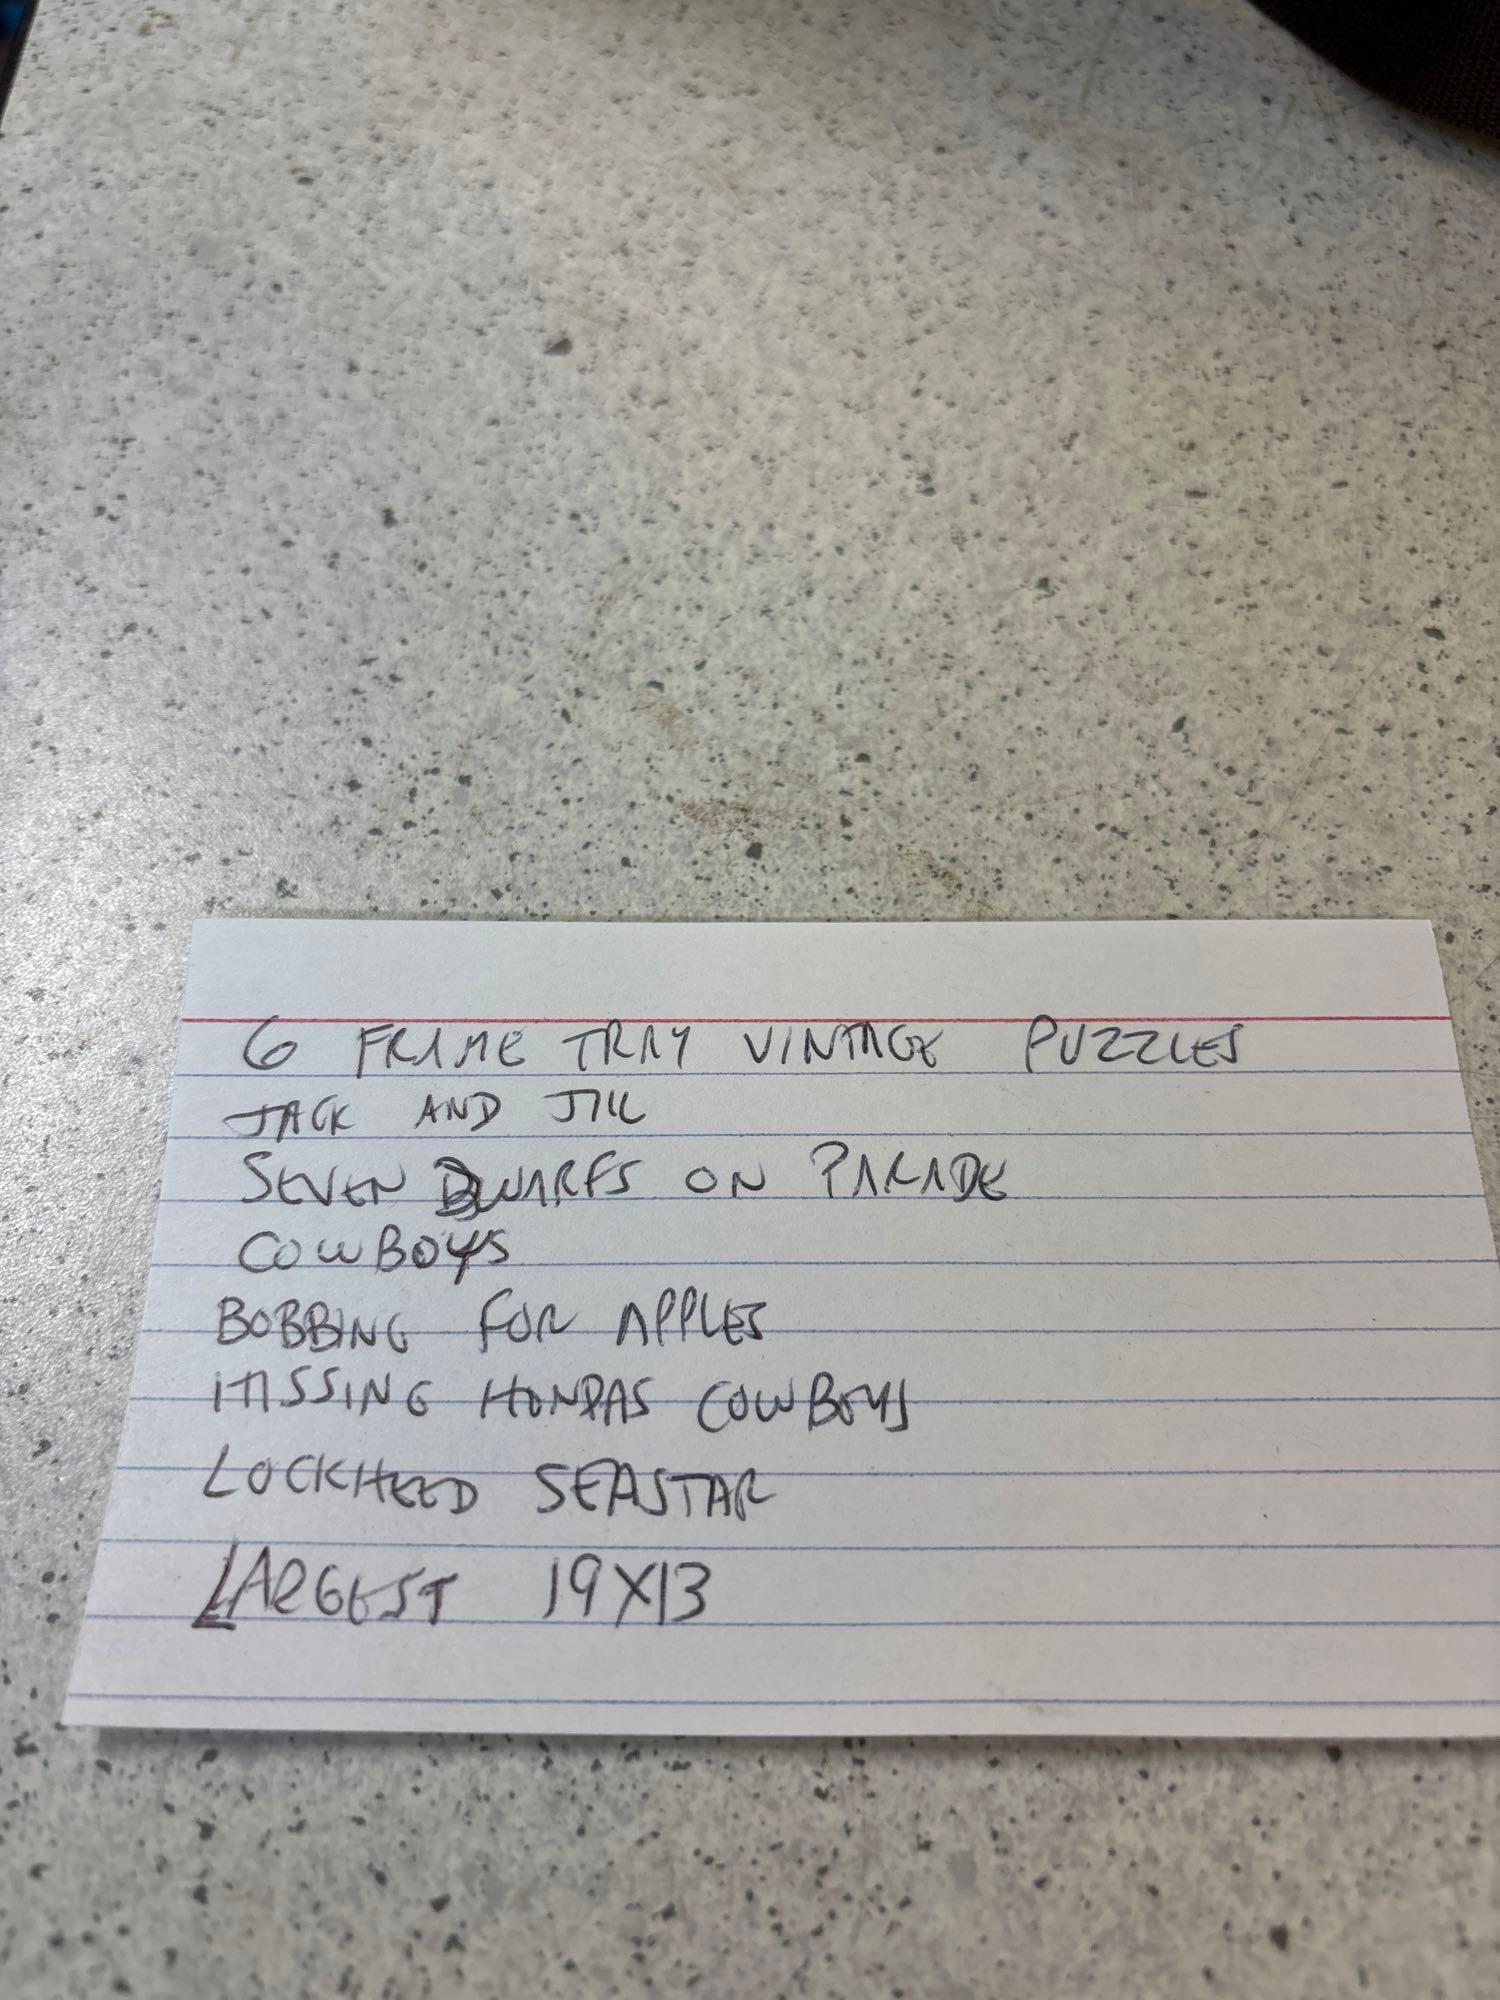 6 FRAME TRAY VINTAGE PUZZLES
JACK AND JILL
SEVEN DWARFS ON PARADE
COWBOYS
BOBBING FOR APPLES
MISSING COWBOYS
LOCKHEED SEASTAR
LARGEST 19X13